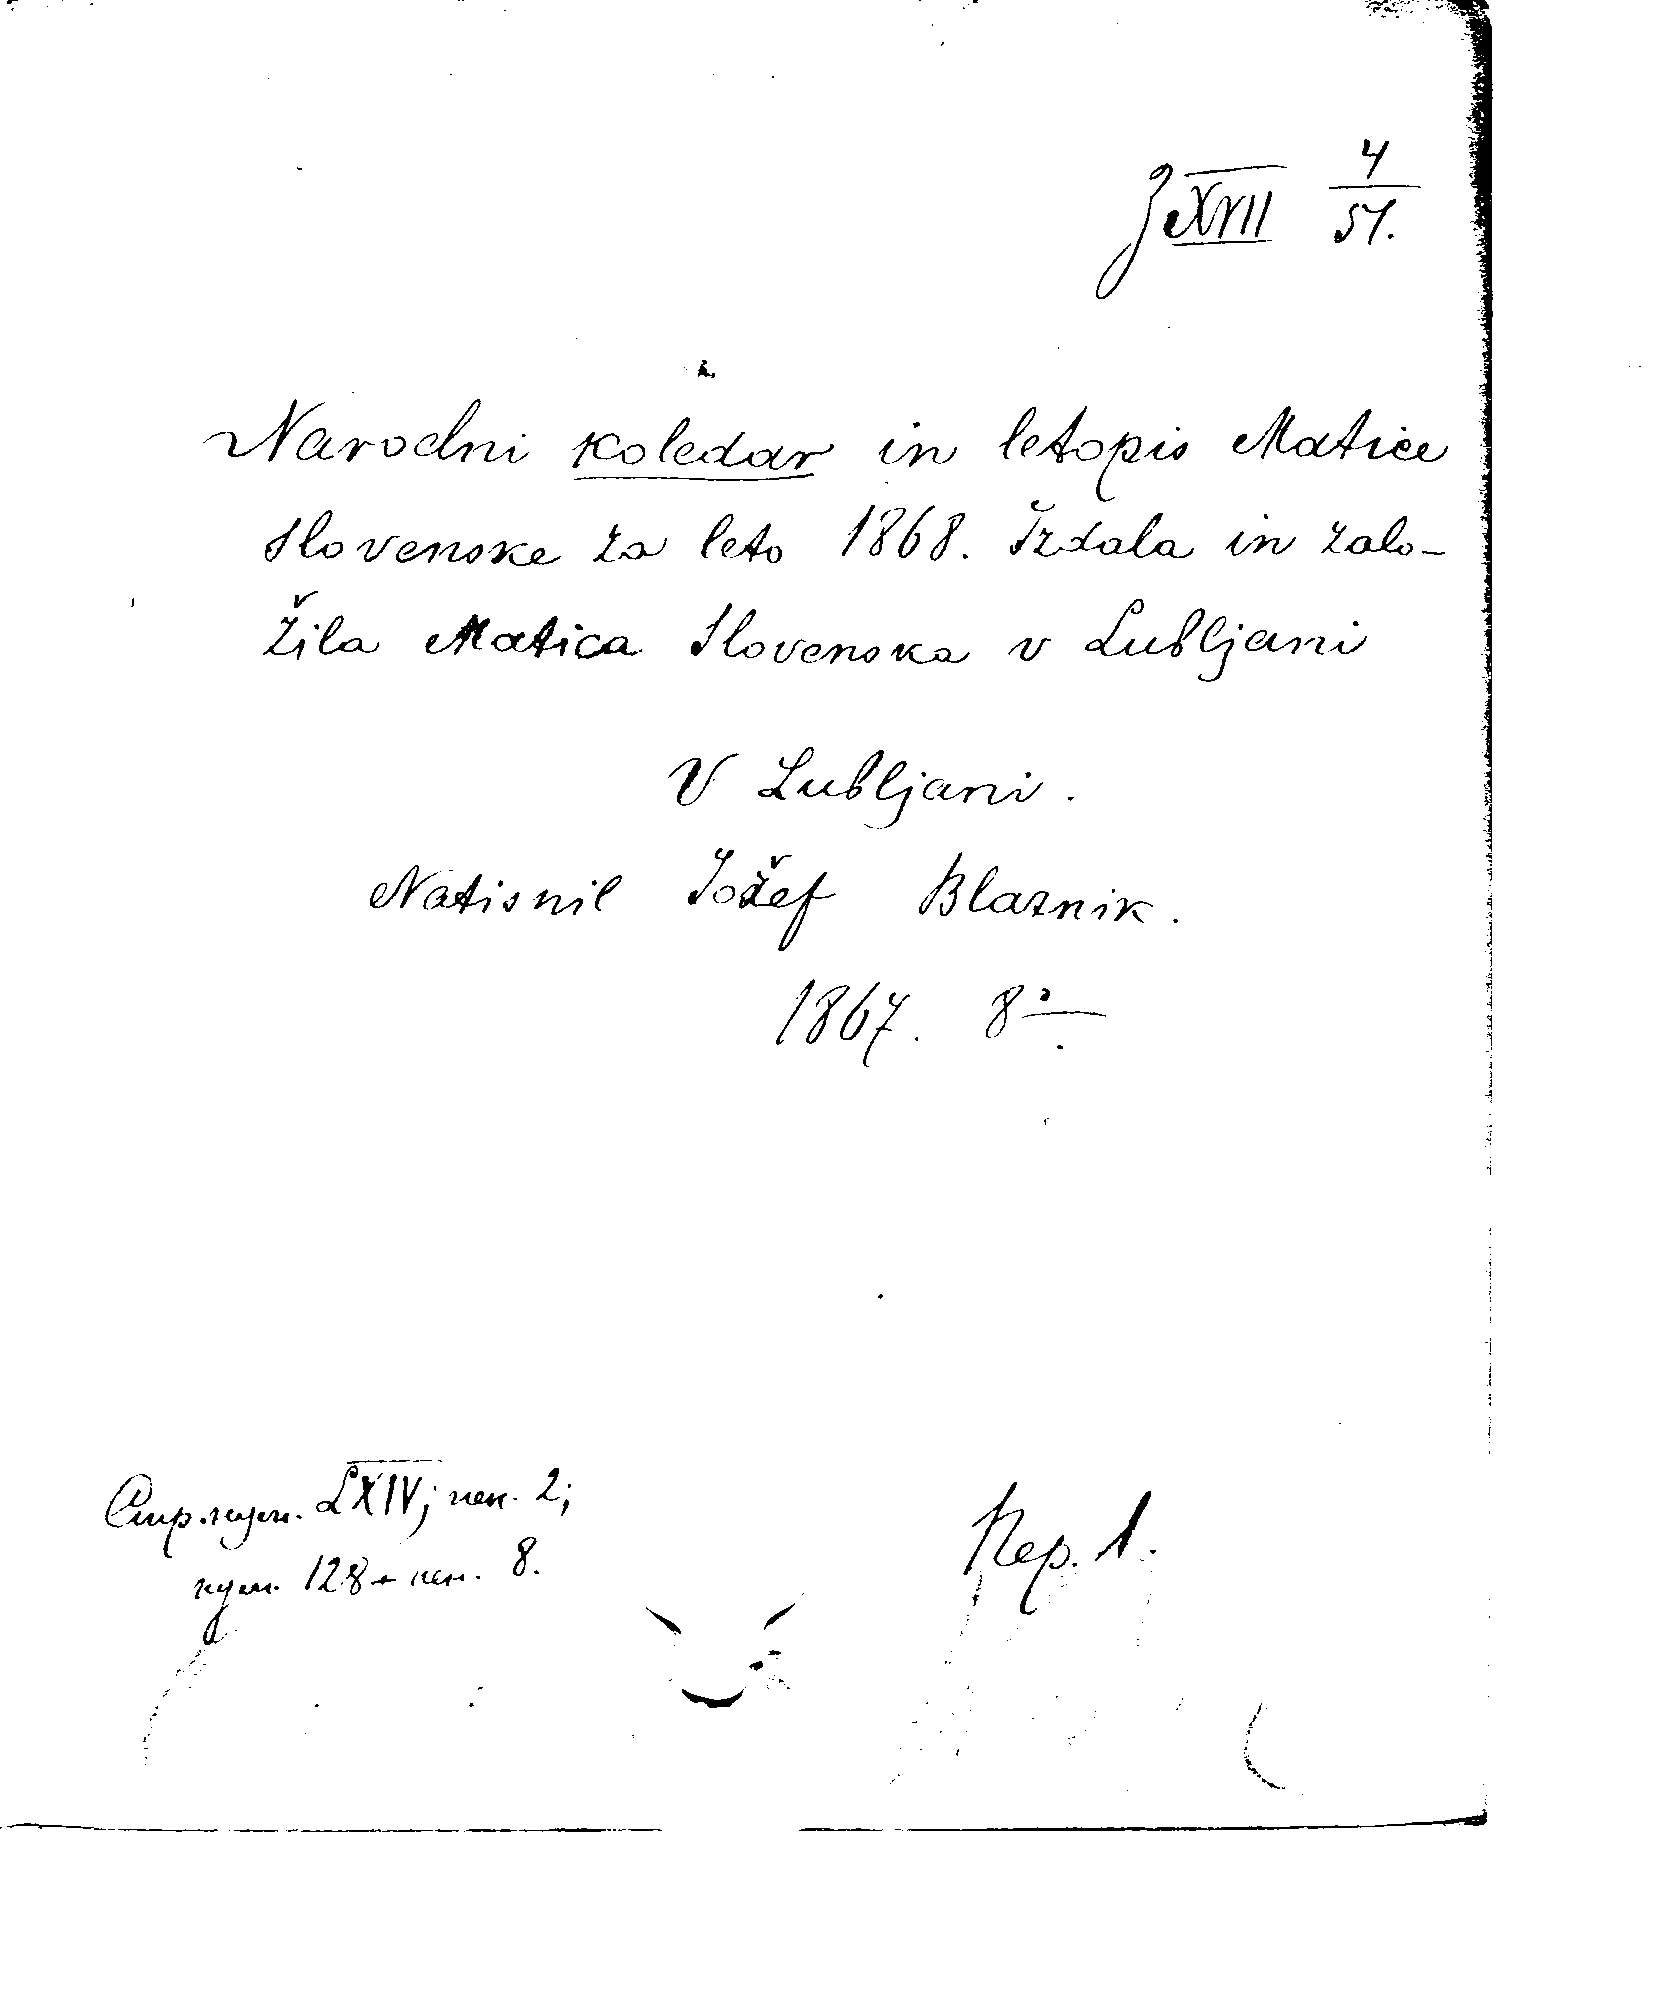 З XVII 4/51.
Narodni koledar in letopis Matice
Slovenske za leto 1868. Izdala in zalo-
žila Matica Slovenska v Lubljani
V Lubljani.
Natisnil Jožef Blaznik.
1867. 8º
Стр. нум. LXIV; нен. 2;
нум. 128 + нен. 8.
Пер. 1.